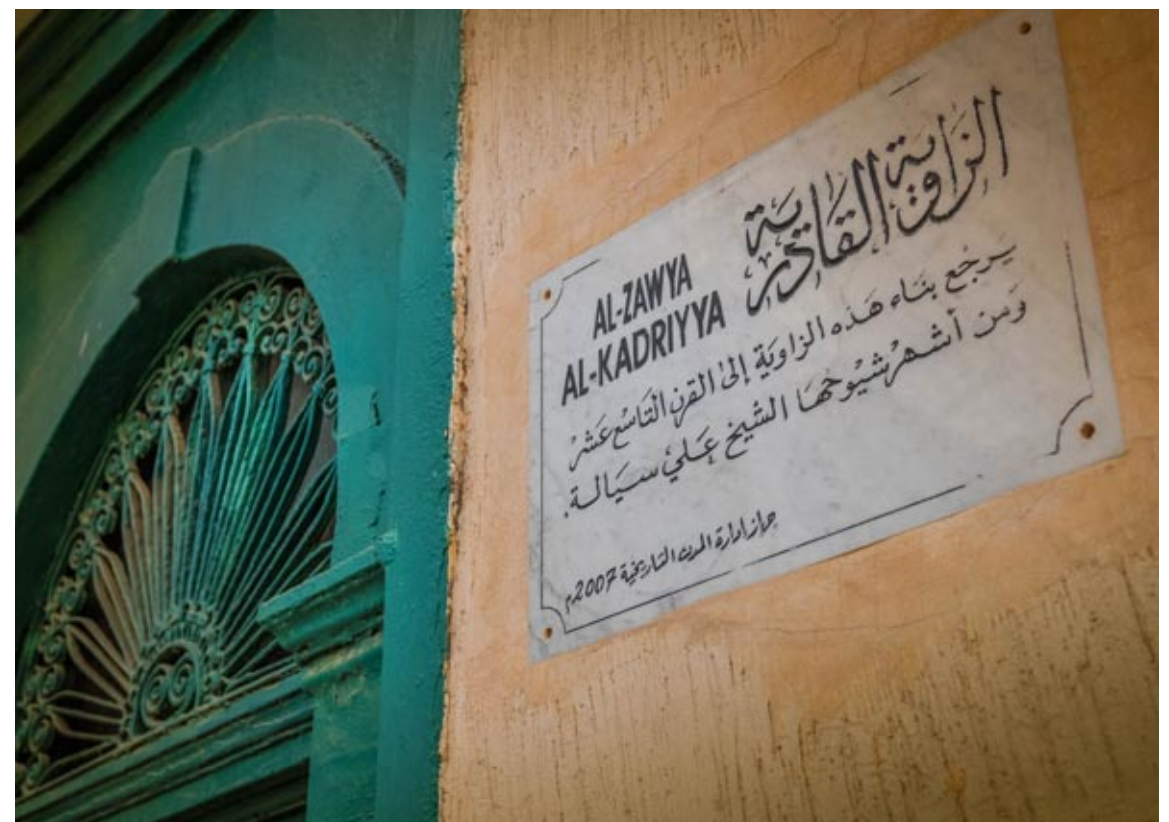 الزاوية القادرية
AL-ZAWYA
AL-KADRIYYA
يرجع بناء هذه الزاوية إلى القرن التاسع عشر
ومن أشهر شيوخها الشيخ علي سيالة.
جهاز إدارة المدن التاريخية 2007م